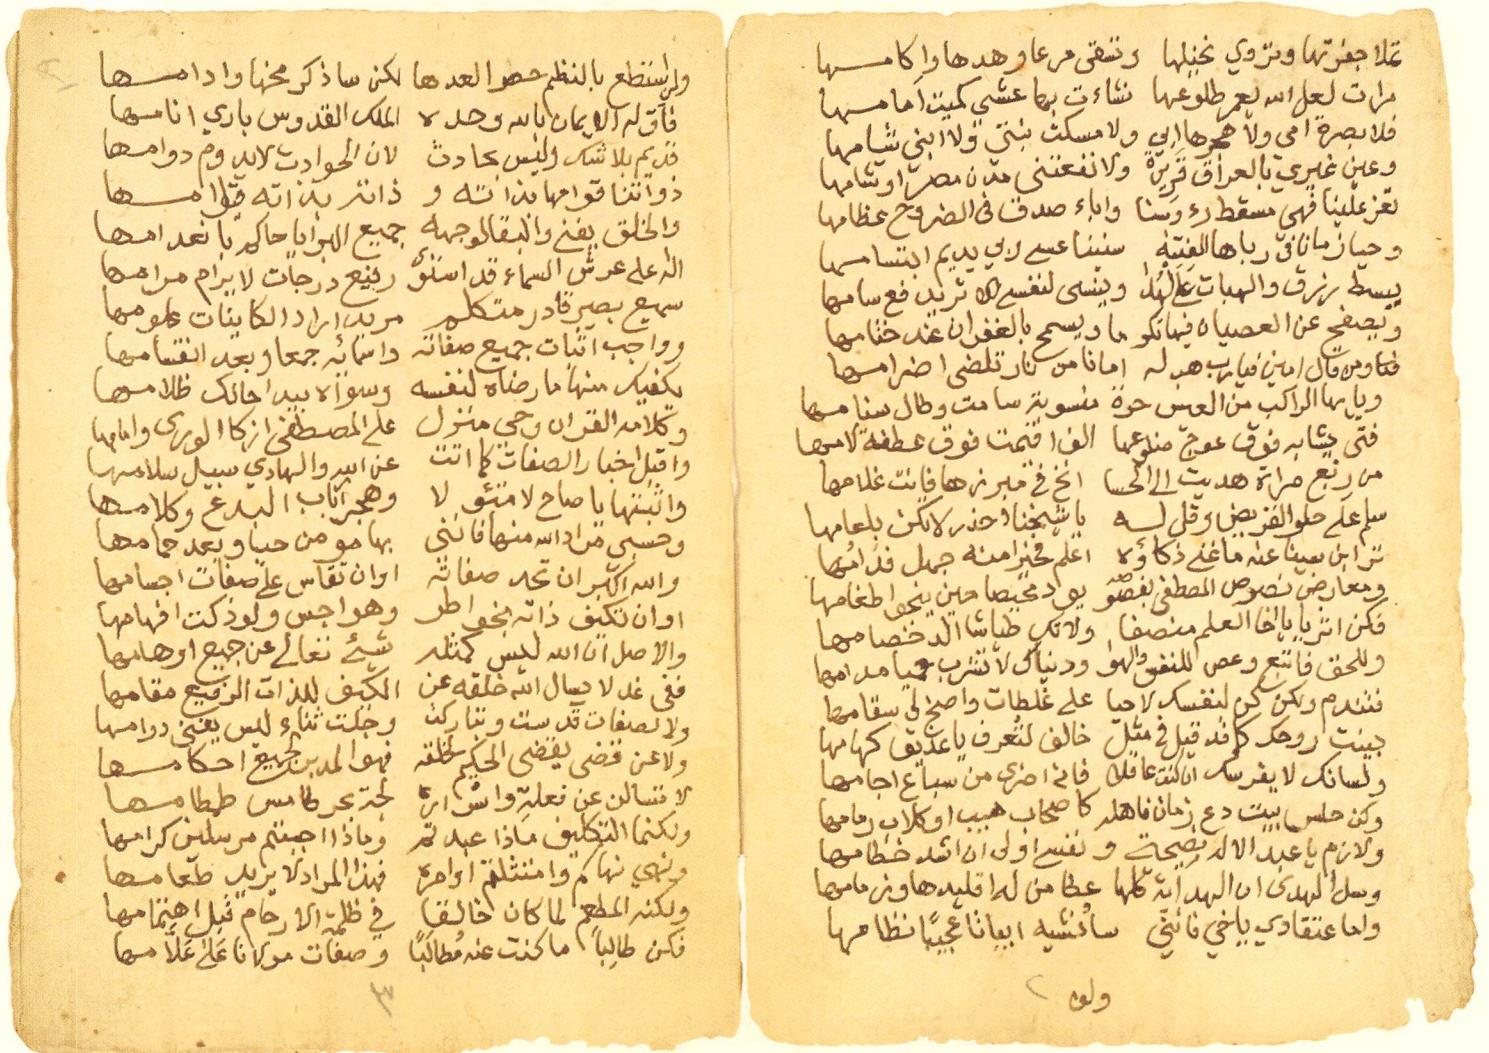 تملا جفرتها وتروي نخيلها وتسقى مرعا وهدها واكامها
مرات لعل الله لعمر طلوعها نشاءت بها عشي كميت امامها
فلا بصرة امي ولا هجرها ابي ولا مسكت بنتي ولا ابني شيامها
وعين غيري بالعراق قريرة ولا نفعتني مدن مصر او شامها
تعز علينا فهي مسقط رءوسنا واباء صدق في الضروح عظامها
وحيا زمانا في رباها لفتية سنينا عسى ربي يديم ابتسامها
يبسط رزق والهبات على
ويصفح عن العصيان يسمح بالغفران عند ختامها
قال امين فيارب هب له امانا من نار تلضى اضرامها
ويايها الراكب من العيس حرة منسوبة سامت وطال سنامها
فتى فوق عوج ضلوعها الف اقتمت فوق عطفة لامها
من ربع مراة هديت الى الحسا انخ في مبرزها فانت غلامها
سلم على حلو القريض وقل له يا شيخنا احذر لا تكن بلعامها
ترا ابن سينا عنه ما غنى ذكاؤه اعلم جهل
ومعارض نصوص المصطفى بفصه يود حين
فكن اثريا يا اخا العلم منصفا ولا تك طياشا الد خصامها
وللحق فاتبع وعص للنفس والهوا ودنياك لا تشرب مدامها
فتندم ولكن كن لنفسك لاحيا على غلطات واضح لي سقامها
بينت روحك كما قد قيل في مثل خالف لتعرف يا عديق كهامها
ولسانك لا يفرسك ان كنت عاقلا فانه اضرى من سباع اجامها
وكن حلس بيت دع زمان فاهله كاصحاب هبهب او كلاب رمامها
ولازم يا عبد الاله نصيحتي ونفسي اولى ان اشد خطامها
وسل الهدى ان الهداية كلها عطا من له اقليدها وزمامها
واما عتقادي ياخي فانني سانشيه ابياتا عجيبا نظامها
ولن
٢
ولن استطع بالنظم حصر العدها لكن ساذكر مخها وادامها
فاول الايمان بالله وحده الملك القدوس باري انامها
قديم بلا شك وليس بحادث لان الحوادث لا يدوم دوامها
ذواتنا قوامها بذاته و بذاته قوامها
والخلق يفنى والبقا لوجهه جميع البرايا حاكم بانعدامها
اله على عرش السماء قد استوى رفيع درجات لا يرام مرامها
سميع بصير قادر متكلم مريد اراد الكاينات علومها
وواجب اثبات جميع صفاته واسمائه جمعا وبعد انقسامها
يكفيك منها ما رضاه لنفسه وسواه بيدا حالك ظلامها
وكلامه القران وحي منزل على المصطفى ازكا الورى وامامها
واقبل اخبار الصفات كما اتت عن الله والهادي سبيل سلامها
واثبتها يا صاح لا متئول لا وهجر ارباب البدع وكلامها
وحسبي مراد الله منها فانني بها مومن حيا وبعد حمامها
والله اكبر ان تحد صفاته او ان تقاس على صفات اجسامها
او ان تكيف ذاته بخواطر وهواجس ولو ذكت افهامها
والاصل ان الله ليس كمثله شيئ تعالى عن جميع اوهامها
ففي غد لا يسال الله خلقه عن الكيف للذات الرفيع مقامها
ولا لصفات قدست وتباركت وجلت ثناء ليس يفنى دوامها
ولا عن قضى يقضي الحكيم لخلقه فهو المدبر لجميع احكامها
لا تسالن عن فعله واسراره لجة بحر طامس طمطامها
ولكنما التكليف ماذا عبدتم وماذا اجبتم مرسلين كرامها
ونهي نهاكم وامتثلتم اوامره فهذا المراد لا يريد طعامها
ولكنه المطعم لما كان خالقا في ظلمة الارحام قبل اهتمامها
فكن طالبا ما كنت عنه مطالبا وصفات مولانا على علامها
٣